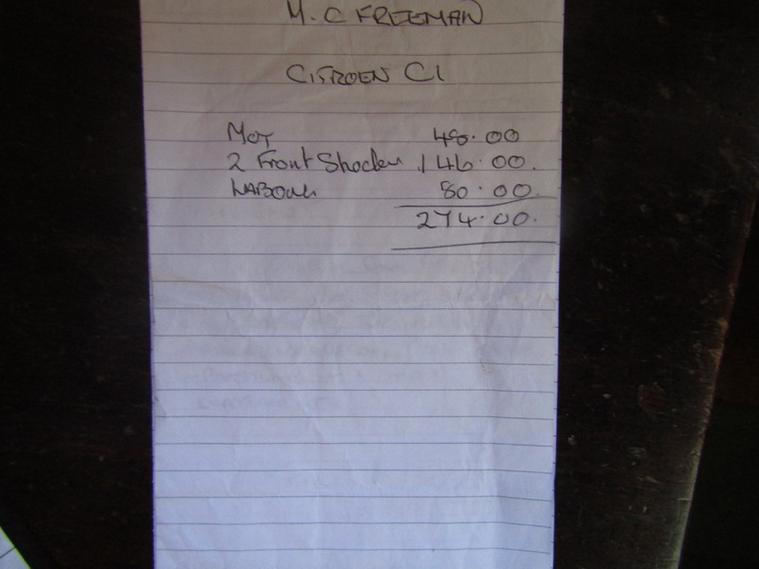 M. C FREEMAN
CITROEN C1
MOT 48.00
2 Front Shocker 146.00.
LABOUR 80.00.
274.00.